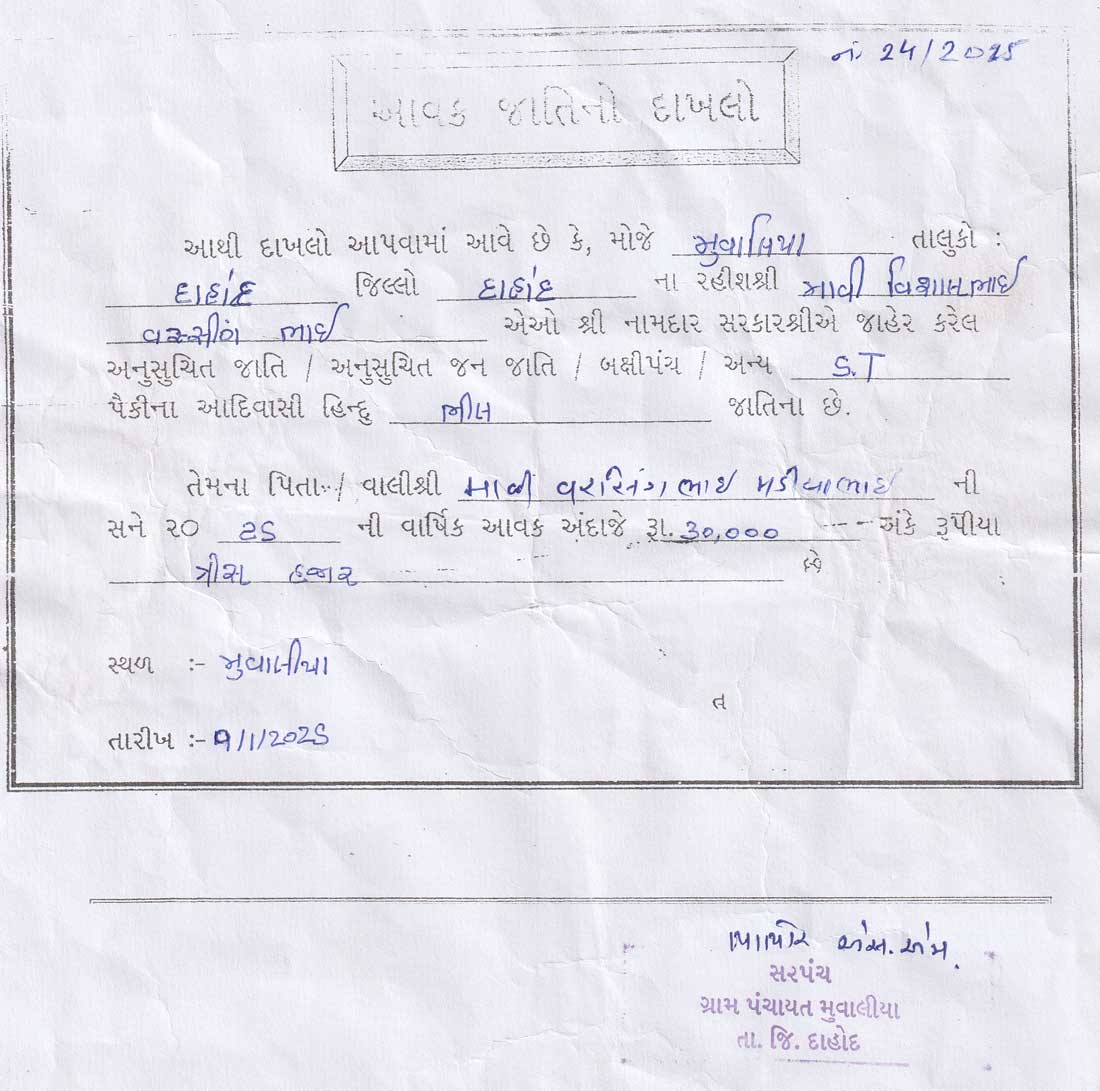 નં. 24/2025
આવક જાતિનો દાખલો
આથી દાખલો આપવામાં આવે છે કે, મોજે મુવાલિયા તાલુકો :
દાહોદ જિલ્લો દાહોદ ના રહીશશ્રી માવી વિશાલભાઈ
વરસીંગ ભાઈ એઓ શ્રી નામદાર સરકારશ્રીએ જાહેર કરેલ
અનુસુચિત જાતિ / અનુસુચિત જન જાતિ / બક્ષીપંચ / અન્ય S.T
પૈકીના આદિવાસી હિન્દુ ભીલ જાતિના છે.
તેમના પિતા / વાલીશ્રી માવી વરસિંગભાઇ મડીયાભાઇ ની
સને ૨૦ ની વાર્ષિક આવક અંદાજે રૂા. 30,000 --- અંકે રૂપીયા
ત્રીસ હજાર છે
સ્થળ :- મુવાલીયા
ત
તારીખ :-
એસ. એમ.
સરપંચ
ગ્રામ પંચાયત મુવાલીયા
તા. જિ. દાહોદ